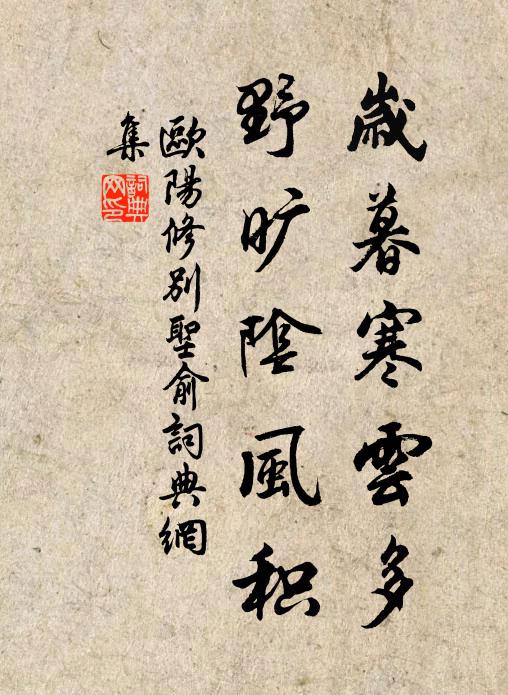 歲暮寒雲多
野旷陰風积
歐陽修别聖俞詞典網
集
詞典
网印